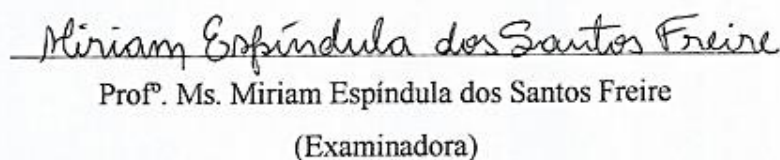 Miriam Espíndula dos Santos Freire
Profº. Ms. Miriam Espíndula dos Santos Freire
(Examinadora)